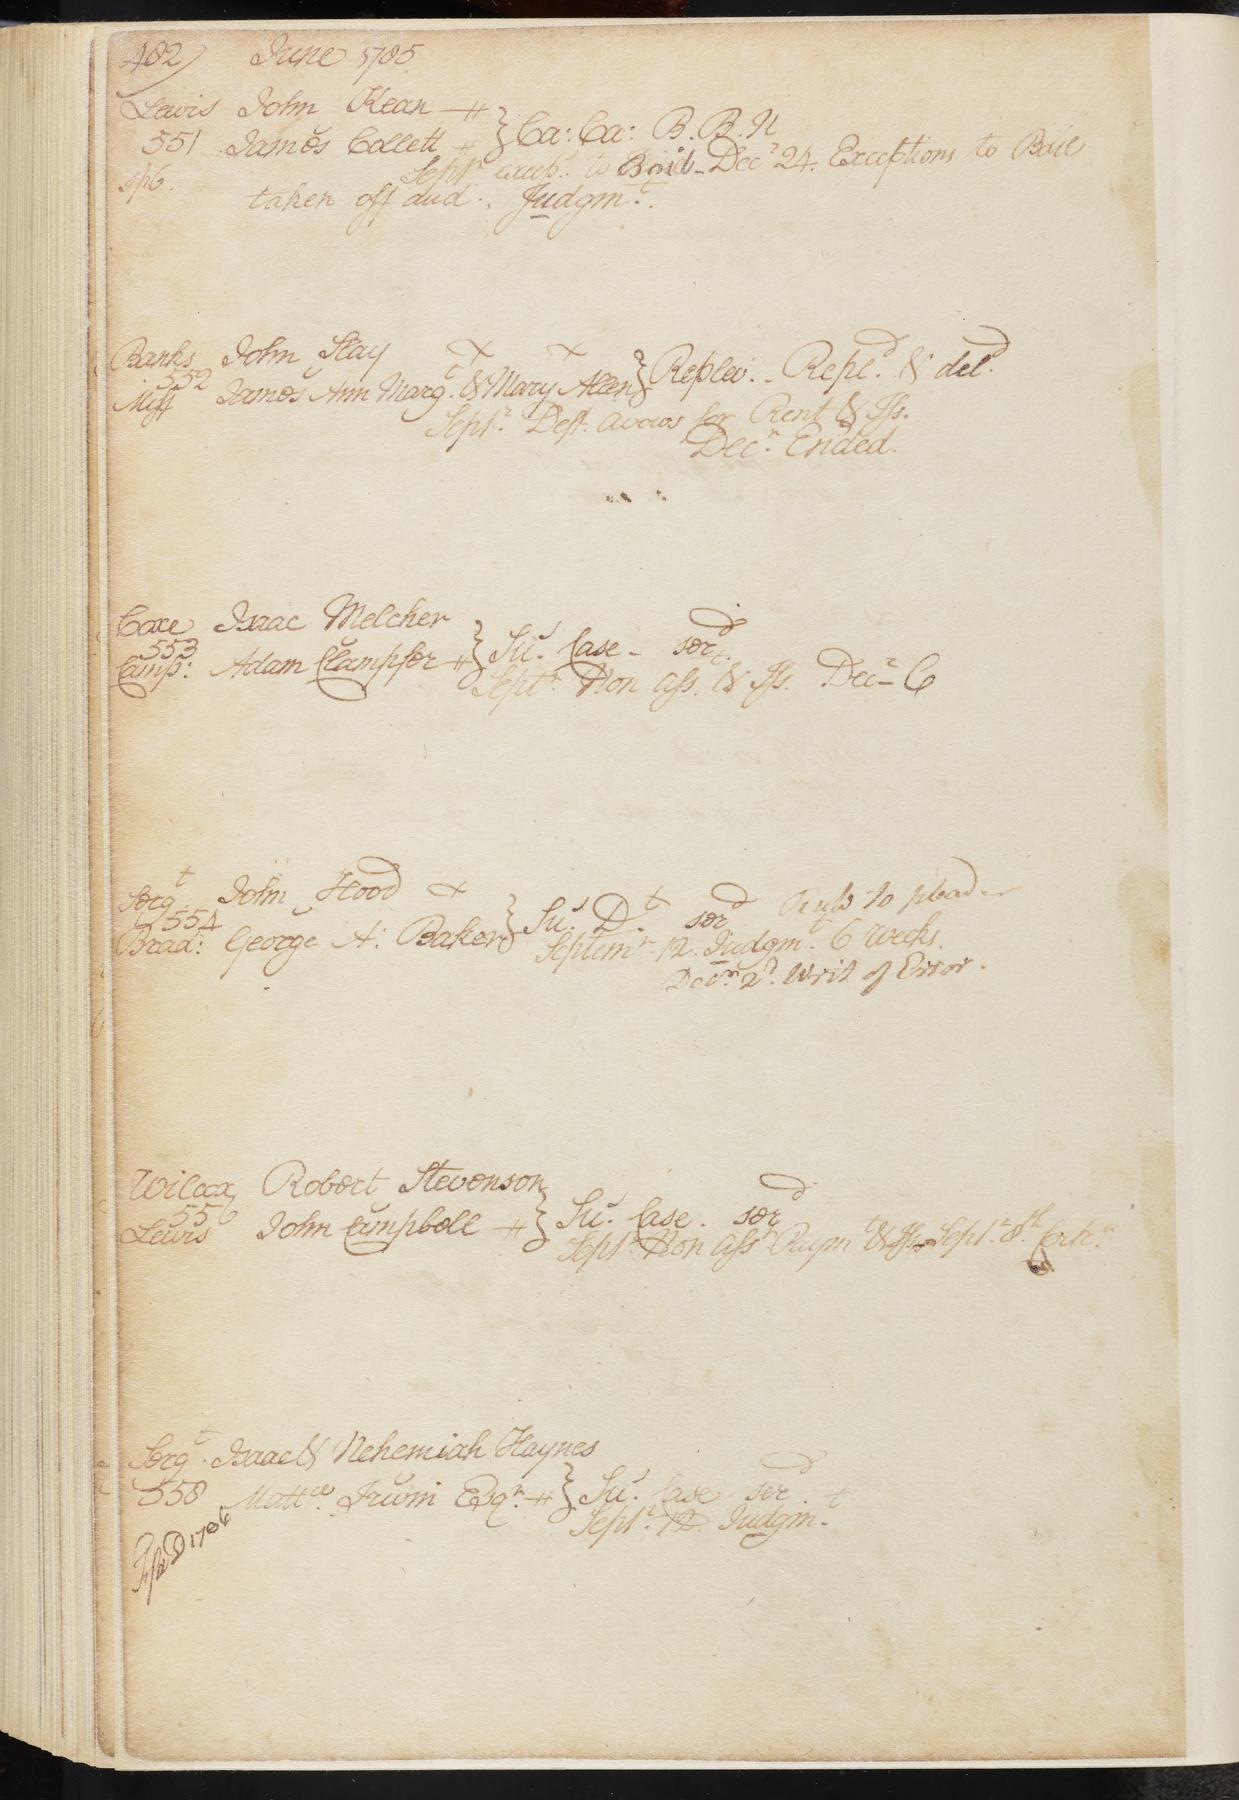 402) June 1785
Lewis John Kean
551 James Collett } Ca: Ca: B. B. N
Sepr. excep. to Baid - Decr 24. Exceptions to Bail
taken off aud. Judgmt.
Banks John Stay
552
Miff James Ann Margt. & Mary Allen } Replev. - Repld. & deld.
Sepr. Deft. avows for Rent & Iss.
Decr. Ended.
Coxe Isaac Melcher
553
Camp: Adam Clampfer } Su. Case - serd.
Septr. Non Ass. & Iss. Decr - C
Sergt. John Hood
554
Brad: George A: Baker } Su. Dt. serd Rule to plead
Septemr. 12. Judgmt. 6 weeks.
Decr. 2d. Writ of Error.
Wilcox Robert Stevenson
556
Lewis John Campbell } Su. Case. serd
Sepr. Non Ass. Paymt & Iss. Sepr. 8th
Sergt. Isaac & Nehemiah Haynes
558 Mattw. Irwin Esqr. } Su. Case serd.
Sepr. 12. Judgmt.
1786